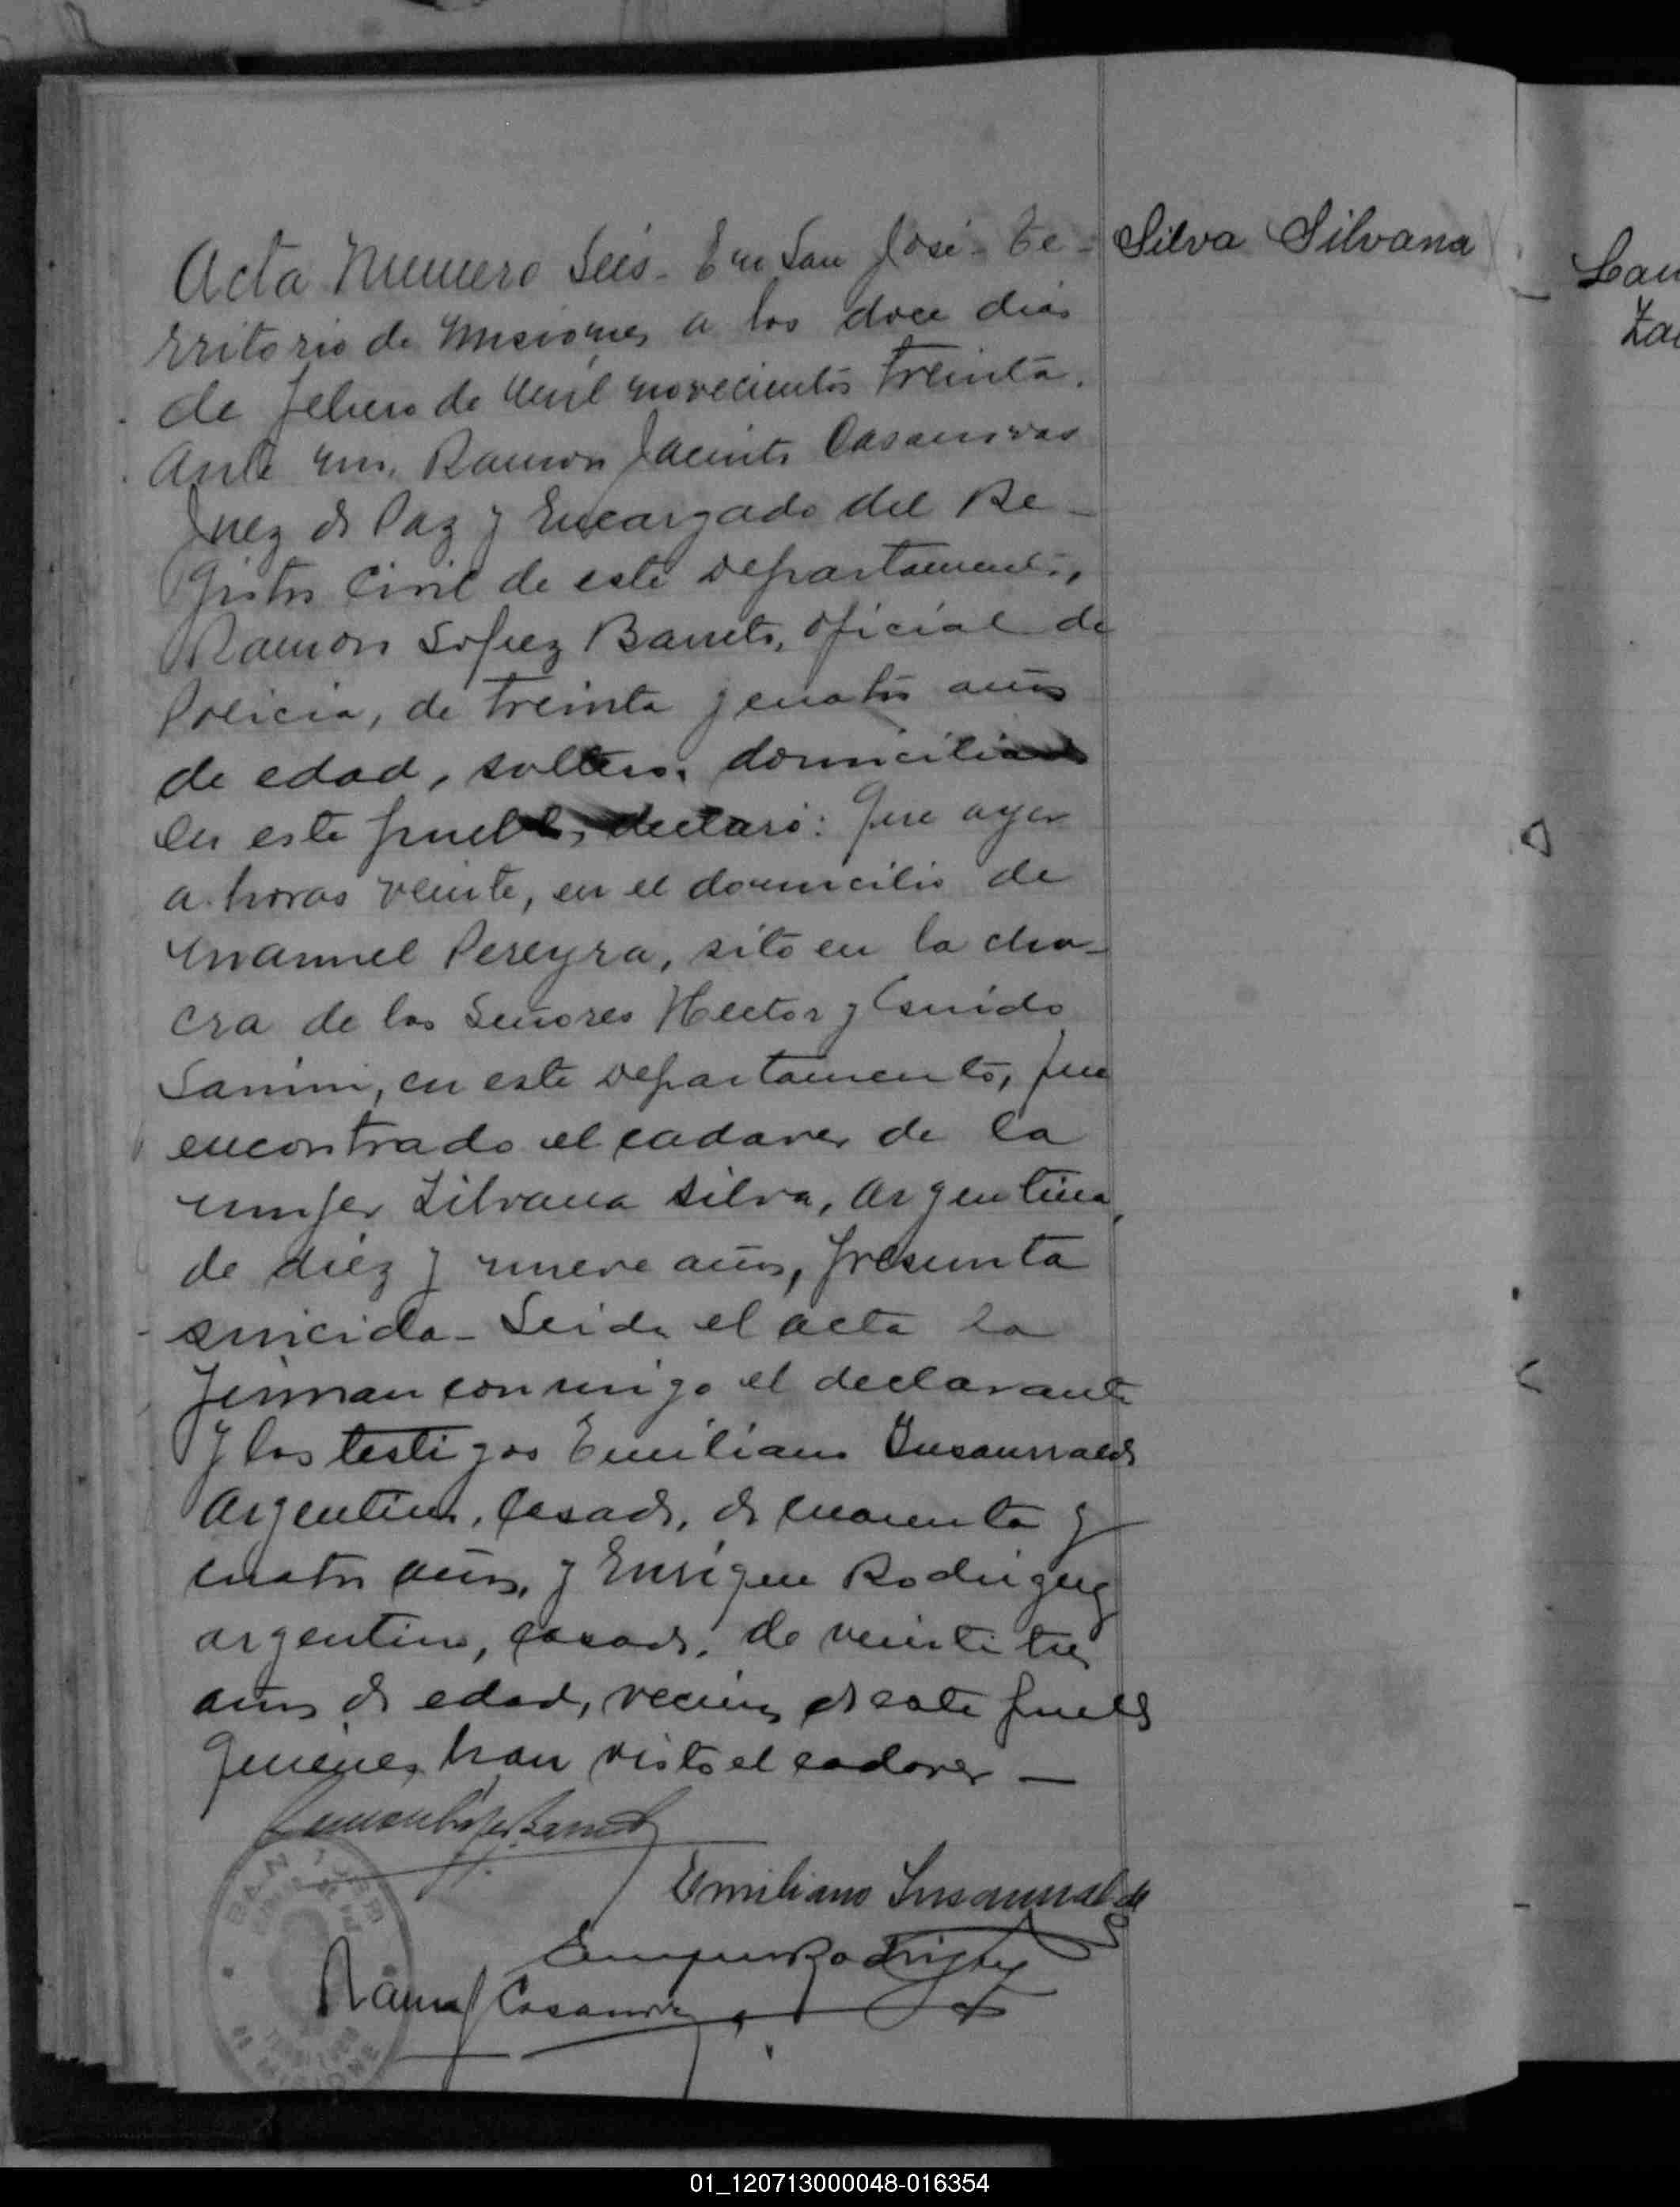 Acta Numero Seis - En San José - Te-
Silva Silvana
rritorio de Misiones a los doce dias
de Febrero de mil novecientos treinta.
Ante mi, Ramon Jacinto Casanovas
Juez de Paz y Encargado del Re-
gistro Civil de este departamento,
Ramon Lopez Barreto, oficial de
Policia, de treinta y cuatro años
de edad, soltero, domiciliado
en este pueblo, declaró: Que ayer
a horas veinte, en el domicilio de
Manuel Pereyra, sito en la cha-
cra de los Señores Hector y Guido
en este departamento, fue
encontrado el cadaver de la
mujer Silvana Silva, Argentina,
de diez y nueve años, presunta
suicida - Leida el acta la
firman conmigo el declarante
y los testigos Emiliano Insaurralde
Argentino, casado, de cuarenta y
cuatro años, y Enrique Rodriguez
argentino, casado, de veinti tres
años de edad, vecinos de este pueblo
quienes han visto el cadaver -
Ramon Lopez Barreto
Emiliano Insaurralde
Enrique Rodriguez
Ramon J Casanovas
Lau
Za
01_120713000048-016354